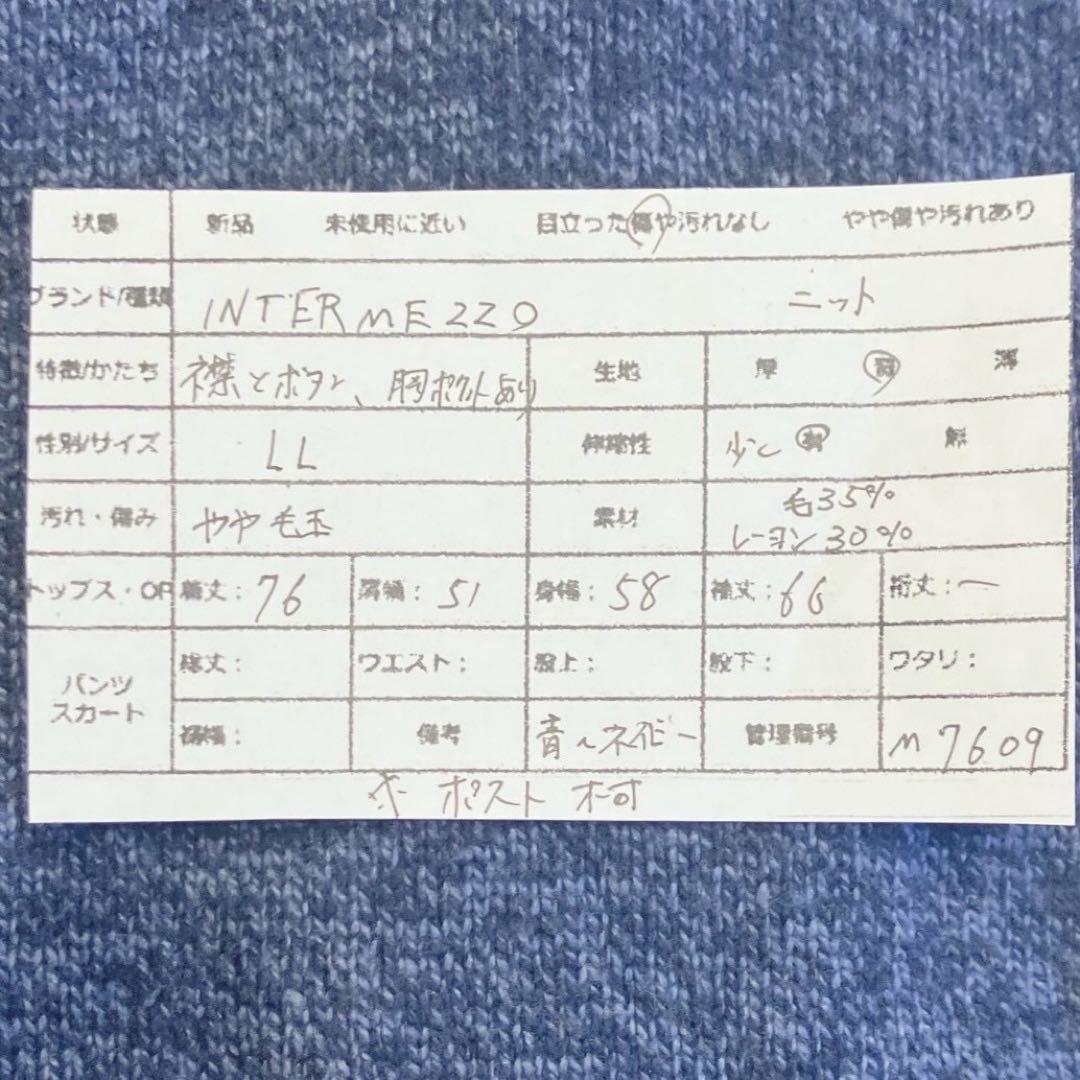 状態 新品 未使用に近い 目立った傷や汚れなし やや傷や汚れあり
ブランド/種類 INTERMEZZO ニット
特徴/かたち 襟とボタン、胸ポケットあり 生地 厚 普 薄
性別/サイズ LL 伸縮性 少し 有 無
汚れ・傷み やや毛玉 素材 毛35%
レーヨン30%
トップス・OP 着丈:76 肩幅:51 身幅:58 袖丈:66 裄丈:ー
パンツ
スカート
総丈: ウエスト: 股上: 股下: ワタリ:
裾幅: 備考 青〜ネイビー 管理番号 M7609
※ ポスト不可